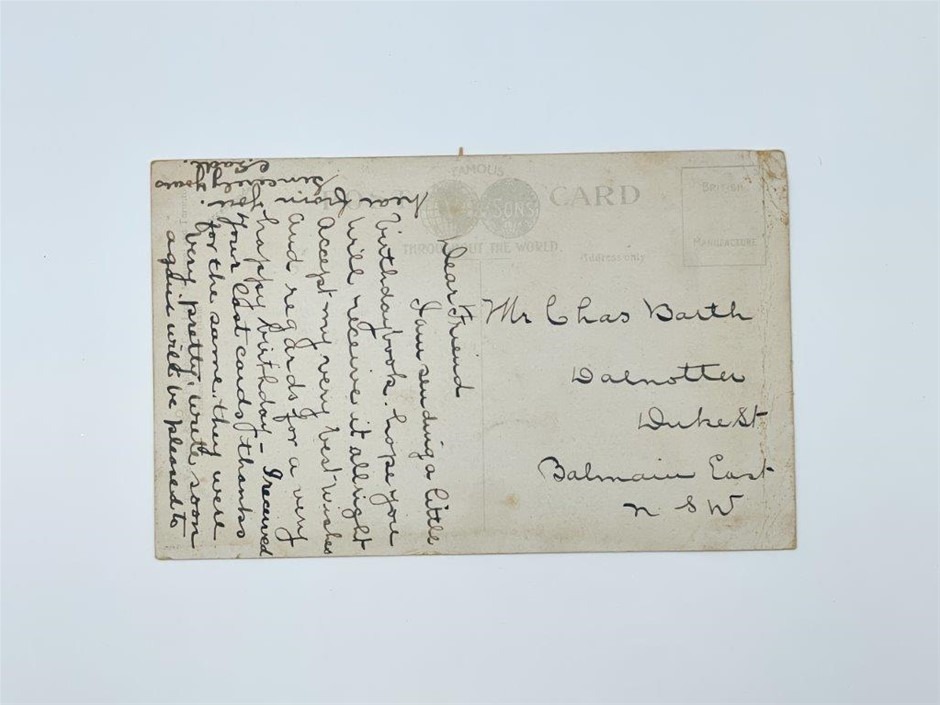 FAMOUS
POST CARD
SONS
THROUGHOUT THE WORLD.
Address only
BRITISH
MANUFACTURE
Dear Friend
I am sending a little
birthday book. hope you
will receive it allright
accept my very best wishes
and regards for a very
happy birthday - I received
your last cards thanks
for the same. they were
very pretty. write soon
again will be pleased to
hear from you.
Sincerely yours
Mr Chas Barth
Dalnotter
Duke St
Balmain East
N S W